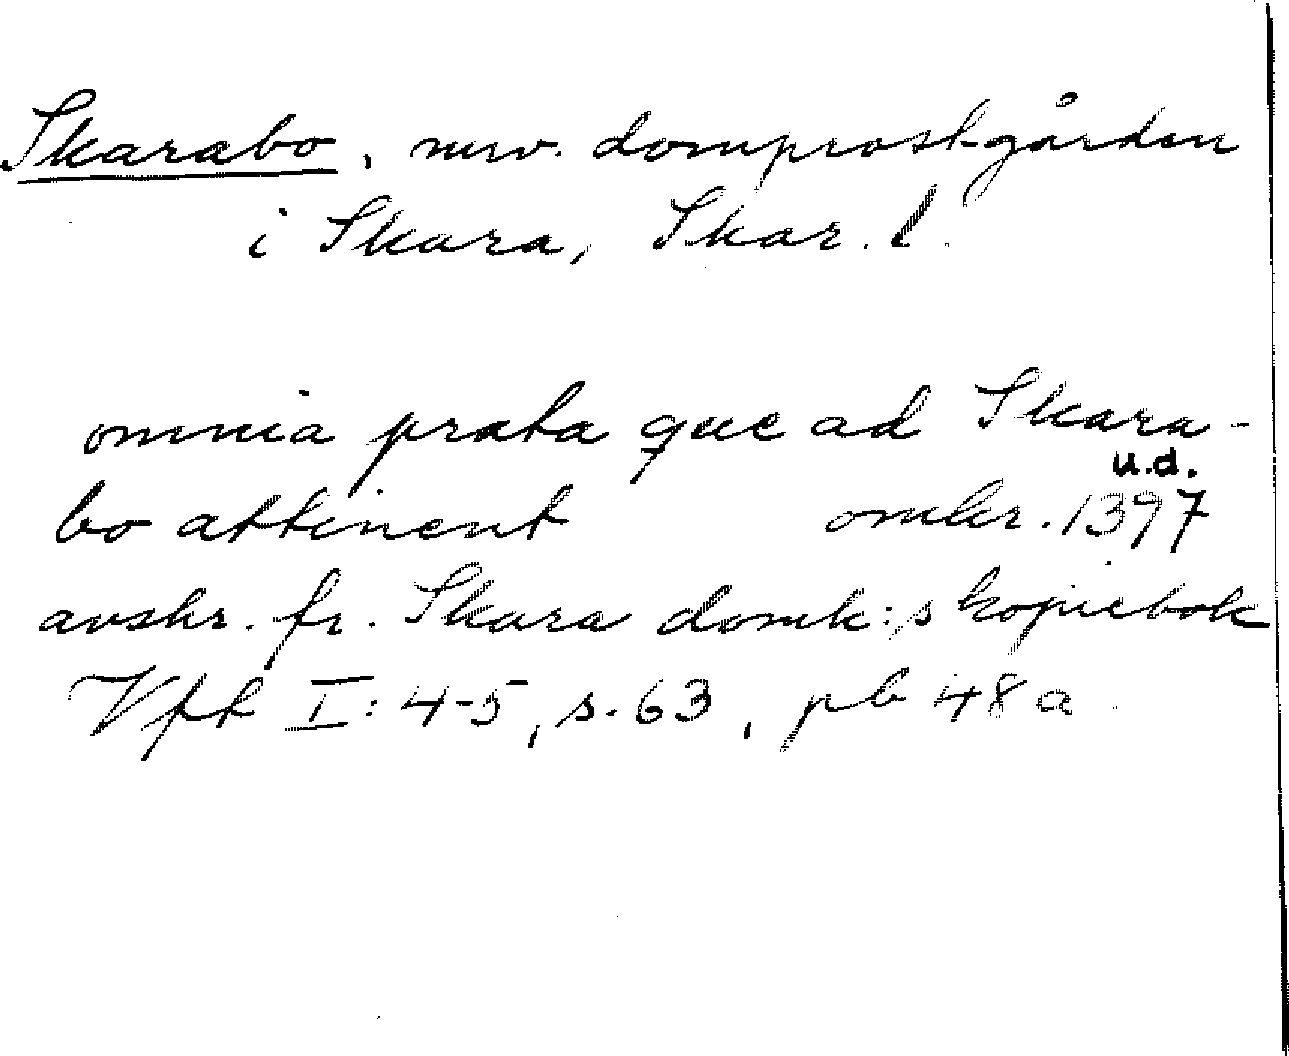 Skarabo, nuv. domprostgården
i Skara, Skar. l.
omnia prata que ad Skara-
u.d.
bo attinent omkr. 1397
avskr. fr. Skara domk:s kopiebok
Vfk I: 4-5, s. 63, pb 48 a